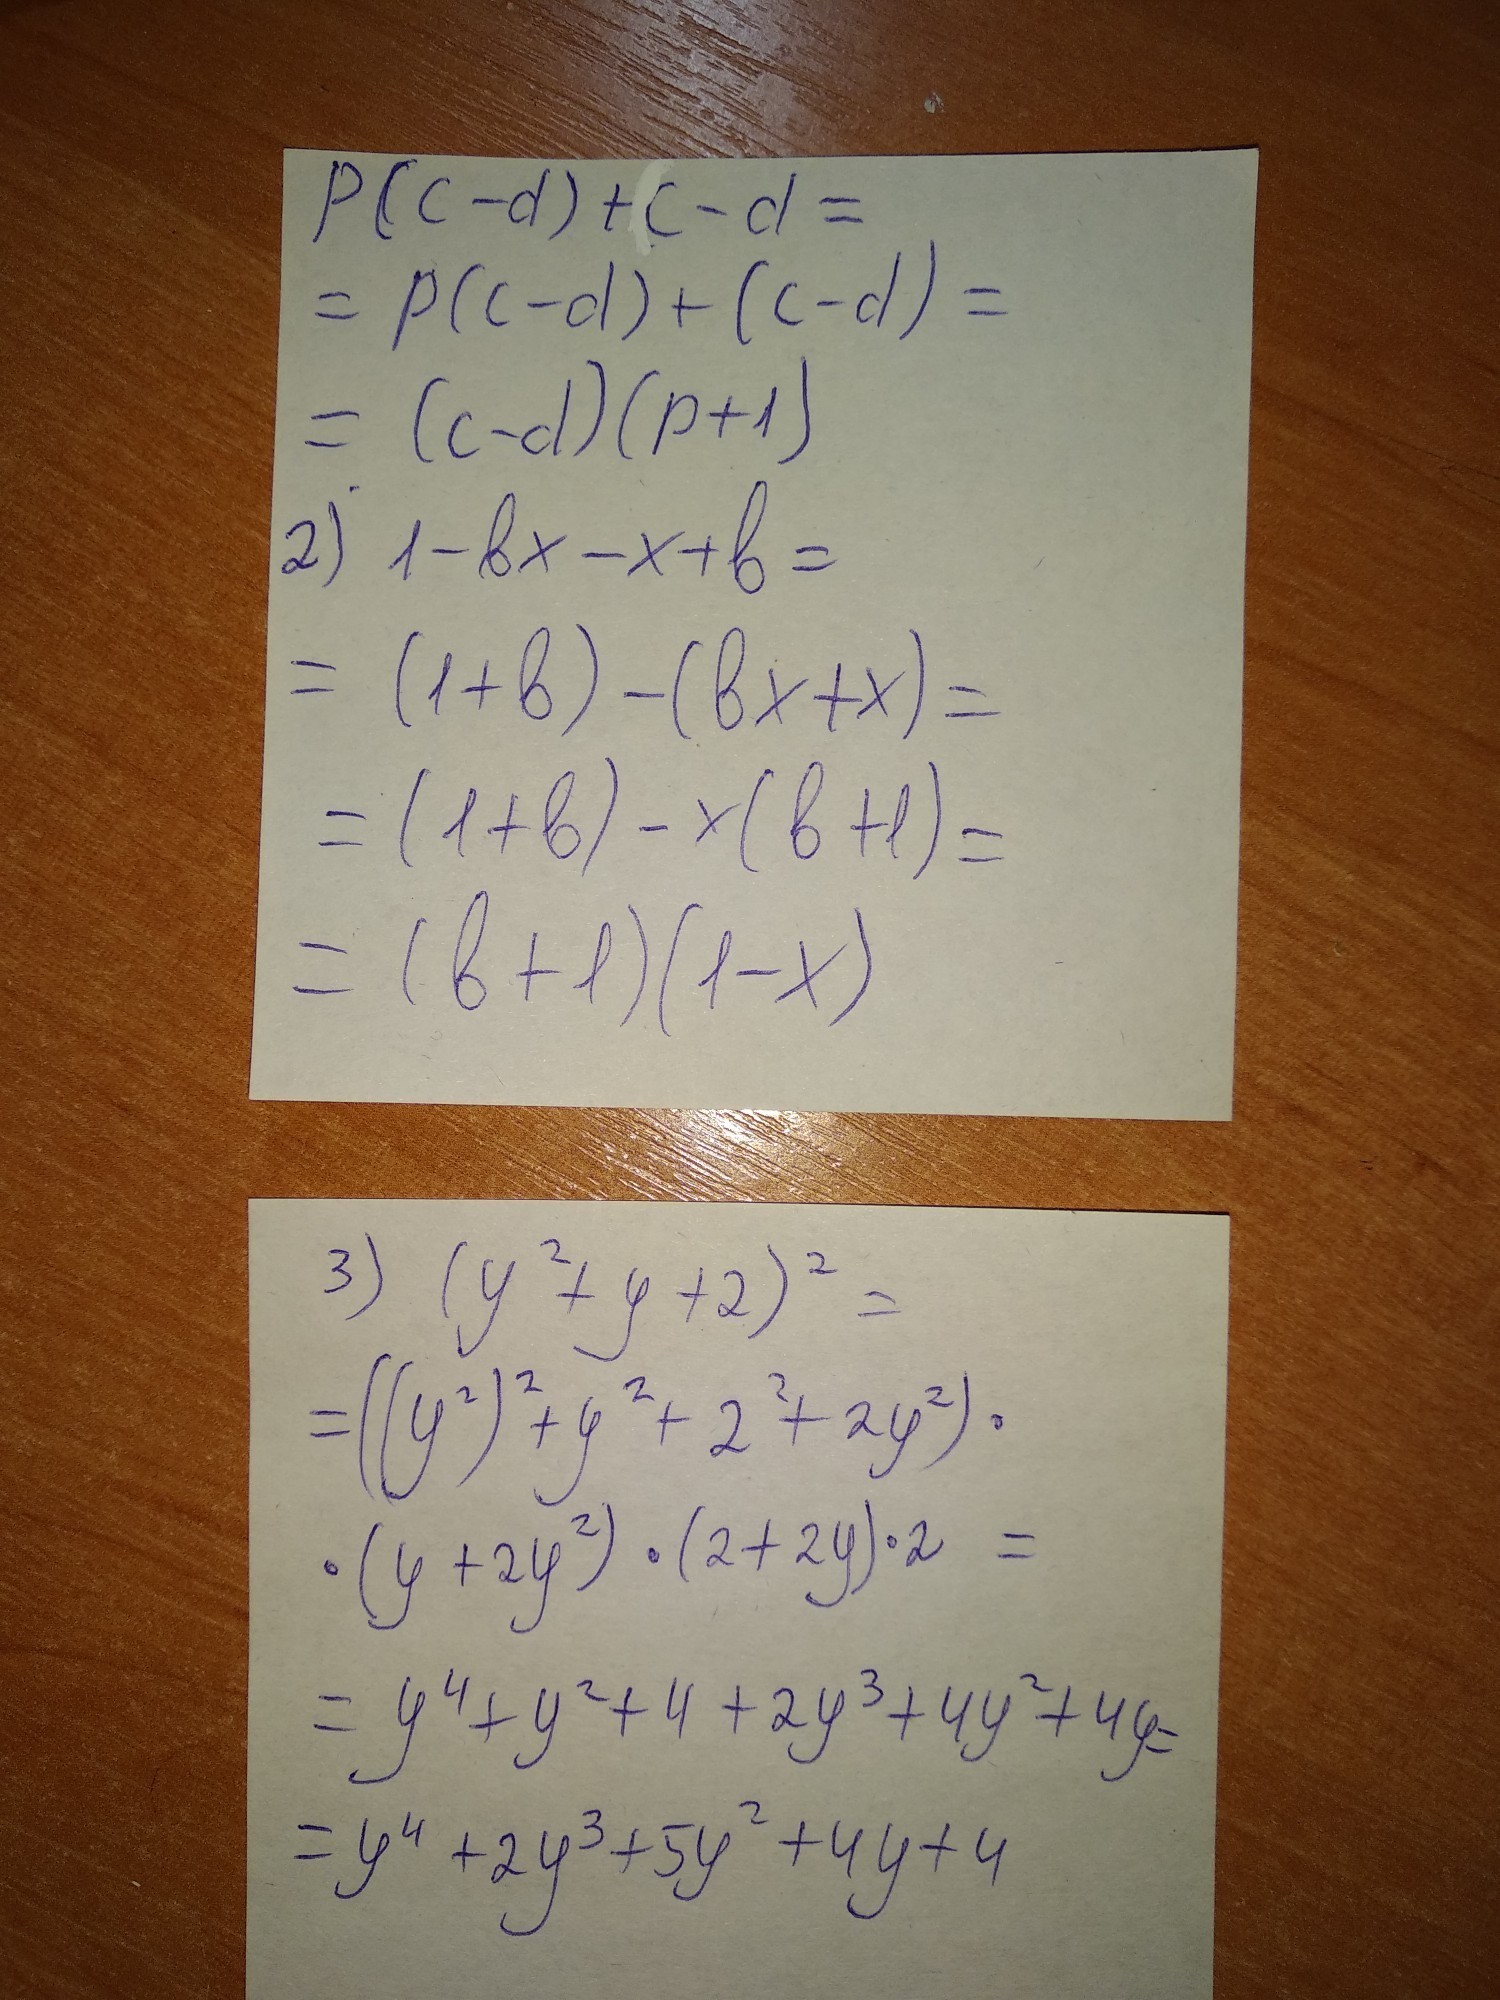 p(c-d)+c-d=
=p(c-d)+(c-d)=
=(c-d)(p+1)
2) 1-bx-x+b=
=(1+b)-(bx+x)=
=(1+b)-x(b+1)=
=(b+1)(1-x)
3) (y²+y+2)²=
=((y²)²+y²+2²+2y²)·
·(y+2y²)·(2+2y)·2 =
=y⁴+y²+4+2y³+4y²+4y=
=y⁴+2y³+5y²+4y+4